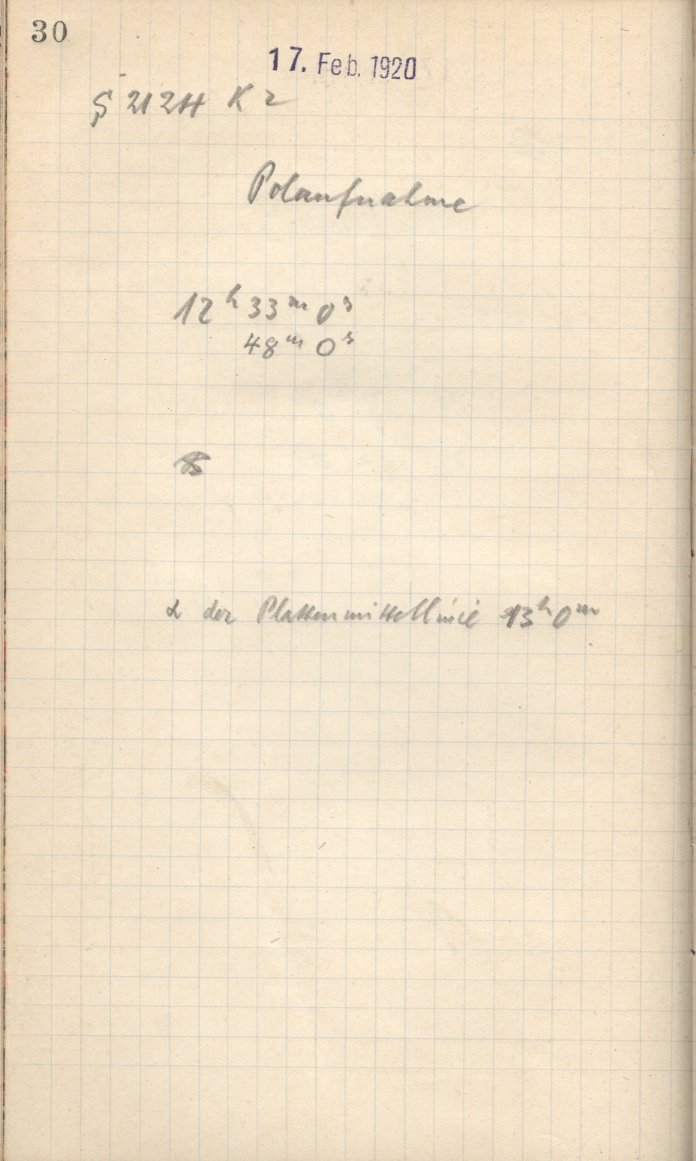 30
17. Feb. 1920
K 2
Polaufnahme
12ʰ 33ᵐ 0ˢ
48ᵐ 0ˢ
α der Plattenmittellinie 13ʰ 0ᵐ